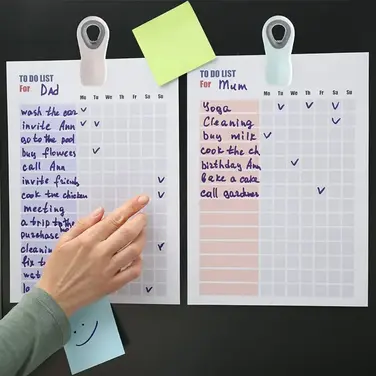 TO DO LIST
For Dad
Mo Tu We Th Fr Sa Su
wash the car
invite Ann
go to the pool
buy flowers
call Ann
invite friends
cook the chicken
meeting
a trip to the
purchase
cleanin
fix t
wat
lo
TO DO LIST
For Mum
Mo Tu We Th Fr Sa Su
Yoga
Cleaning
buy milk
cook the ch
birthday Ann
bake a cake
call gardner